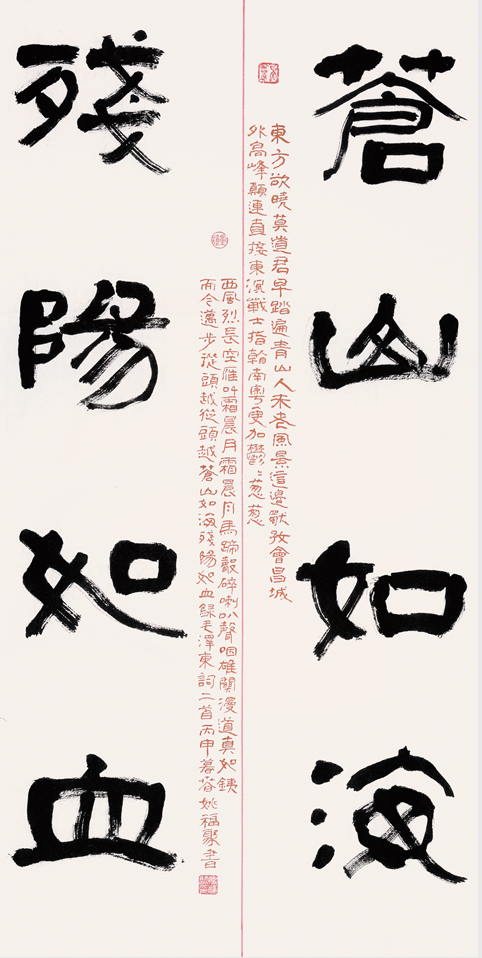 蒼山如海
東方欲曉莫道君早踏遍青山人未老風景這邊獨好會昌城
外高峰顛連直接東溟戰士指看南粵更加鬱〻葱葱
殘陽如血
西風烈長空雁叫霜晨月霜晨月馬蹄聲碎喇叭聲咽雄關漫道真如鐵
而今邁步從頭越從頭越蒼山如海殘陽如血錄毛澤東詞二首丙申暮春姚福聚書